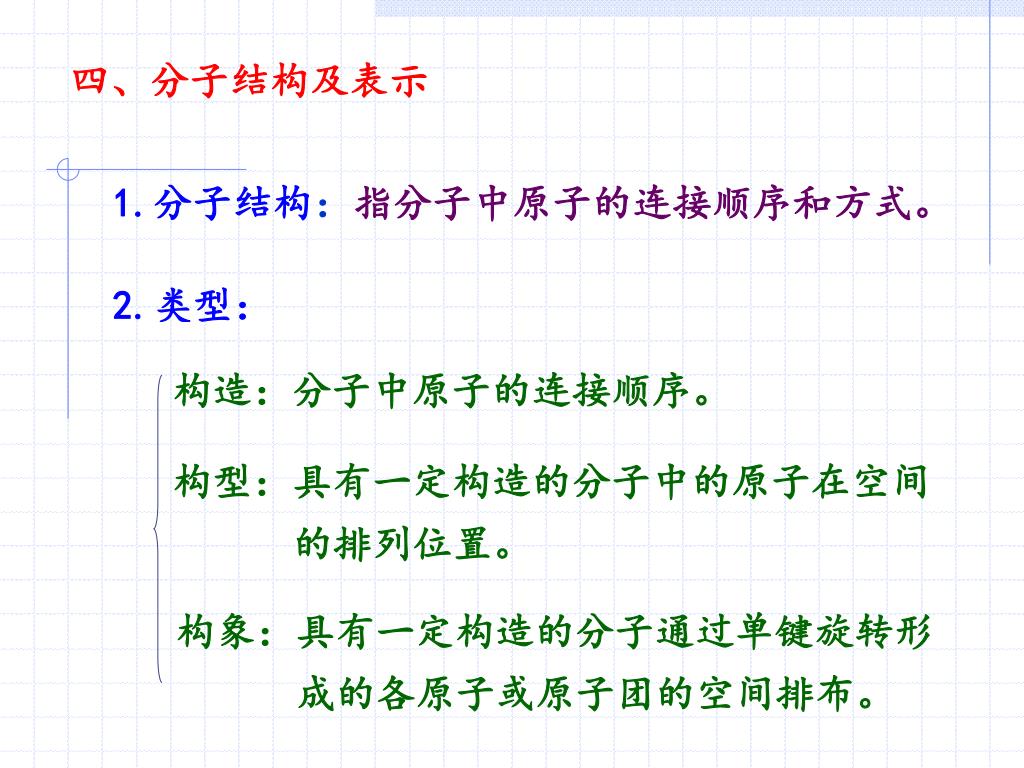 四、分子结构及表示
1.分子结构：指分子中原子的连接顺序和方式。
2.类型：
构造：分子中原子的连接顺序。
构型：具有一定构造的分子中的原子在空间
的排列位置。
构象：具有一定构造的分子通过单键旋转形
成的各原子或原子团的空间排布。